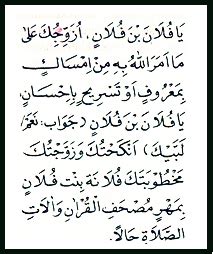 يَا فُلَانَ بْنَ فُلَانٍ، اُزَوِّجُكَ عَلَى
مَا اَمَرَ اللهُ بِهِ مِنْ اِمْسَاكٍ
بِمَعْرُوفٍ اَوْ تَسْرِيحٍ بِاِحْسَانٍ
يَا فُلَانَ بْنَ فُلَانٍ (جَوَاب، نَعَمْ/
لَبَّيْكَ) اَنْكَحْتُكَ وَزَوَّجْتُكَ
مَخْطُوبَتَكَ فُلَانَةَ بِنْتَ فُلَانٍ
بِمَهْرٍ مُصْحَفِ الْقُرْاٰنِ وَاٰلَاتِ
الصَّلَاةِ حَالًا.